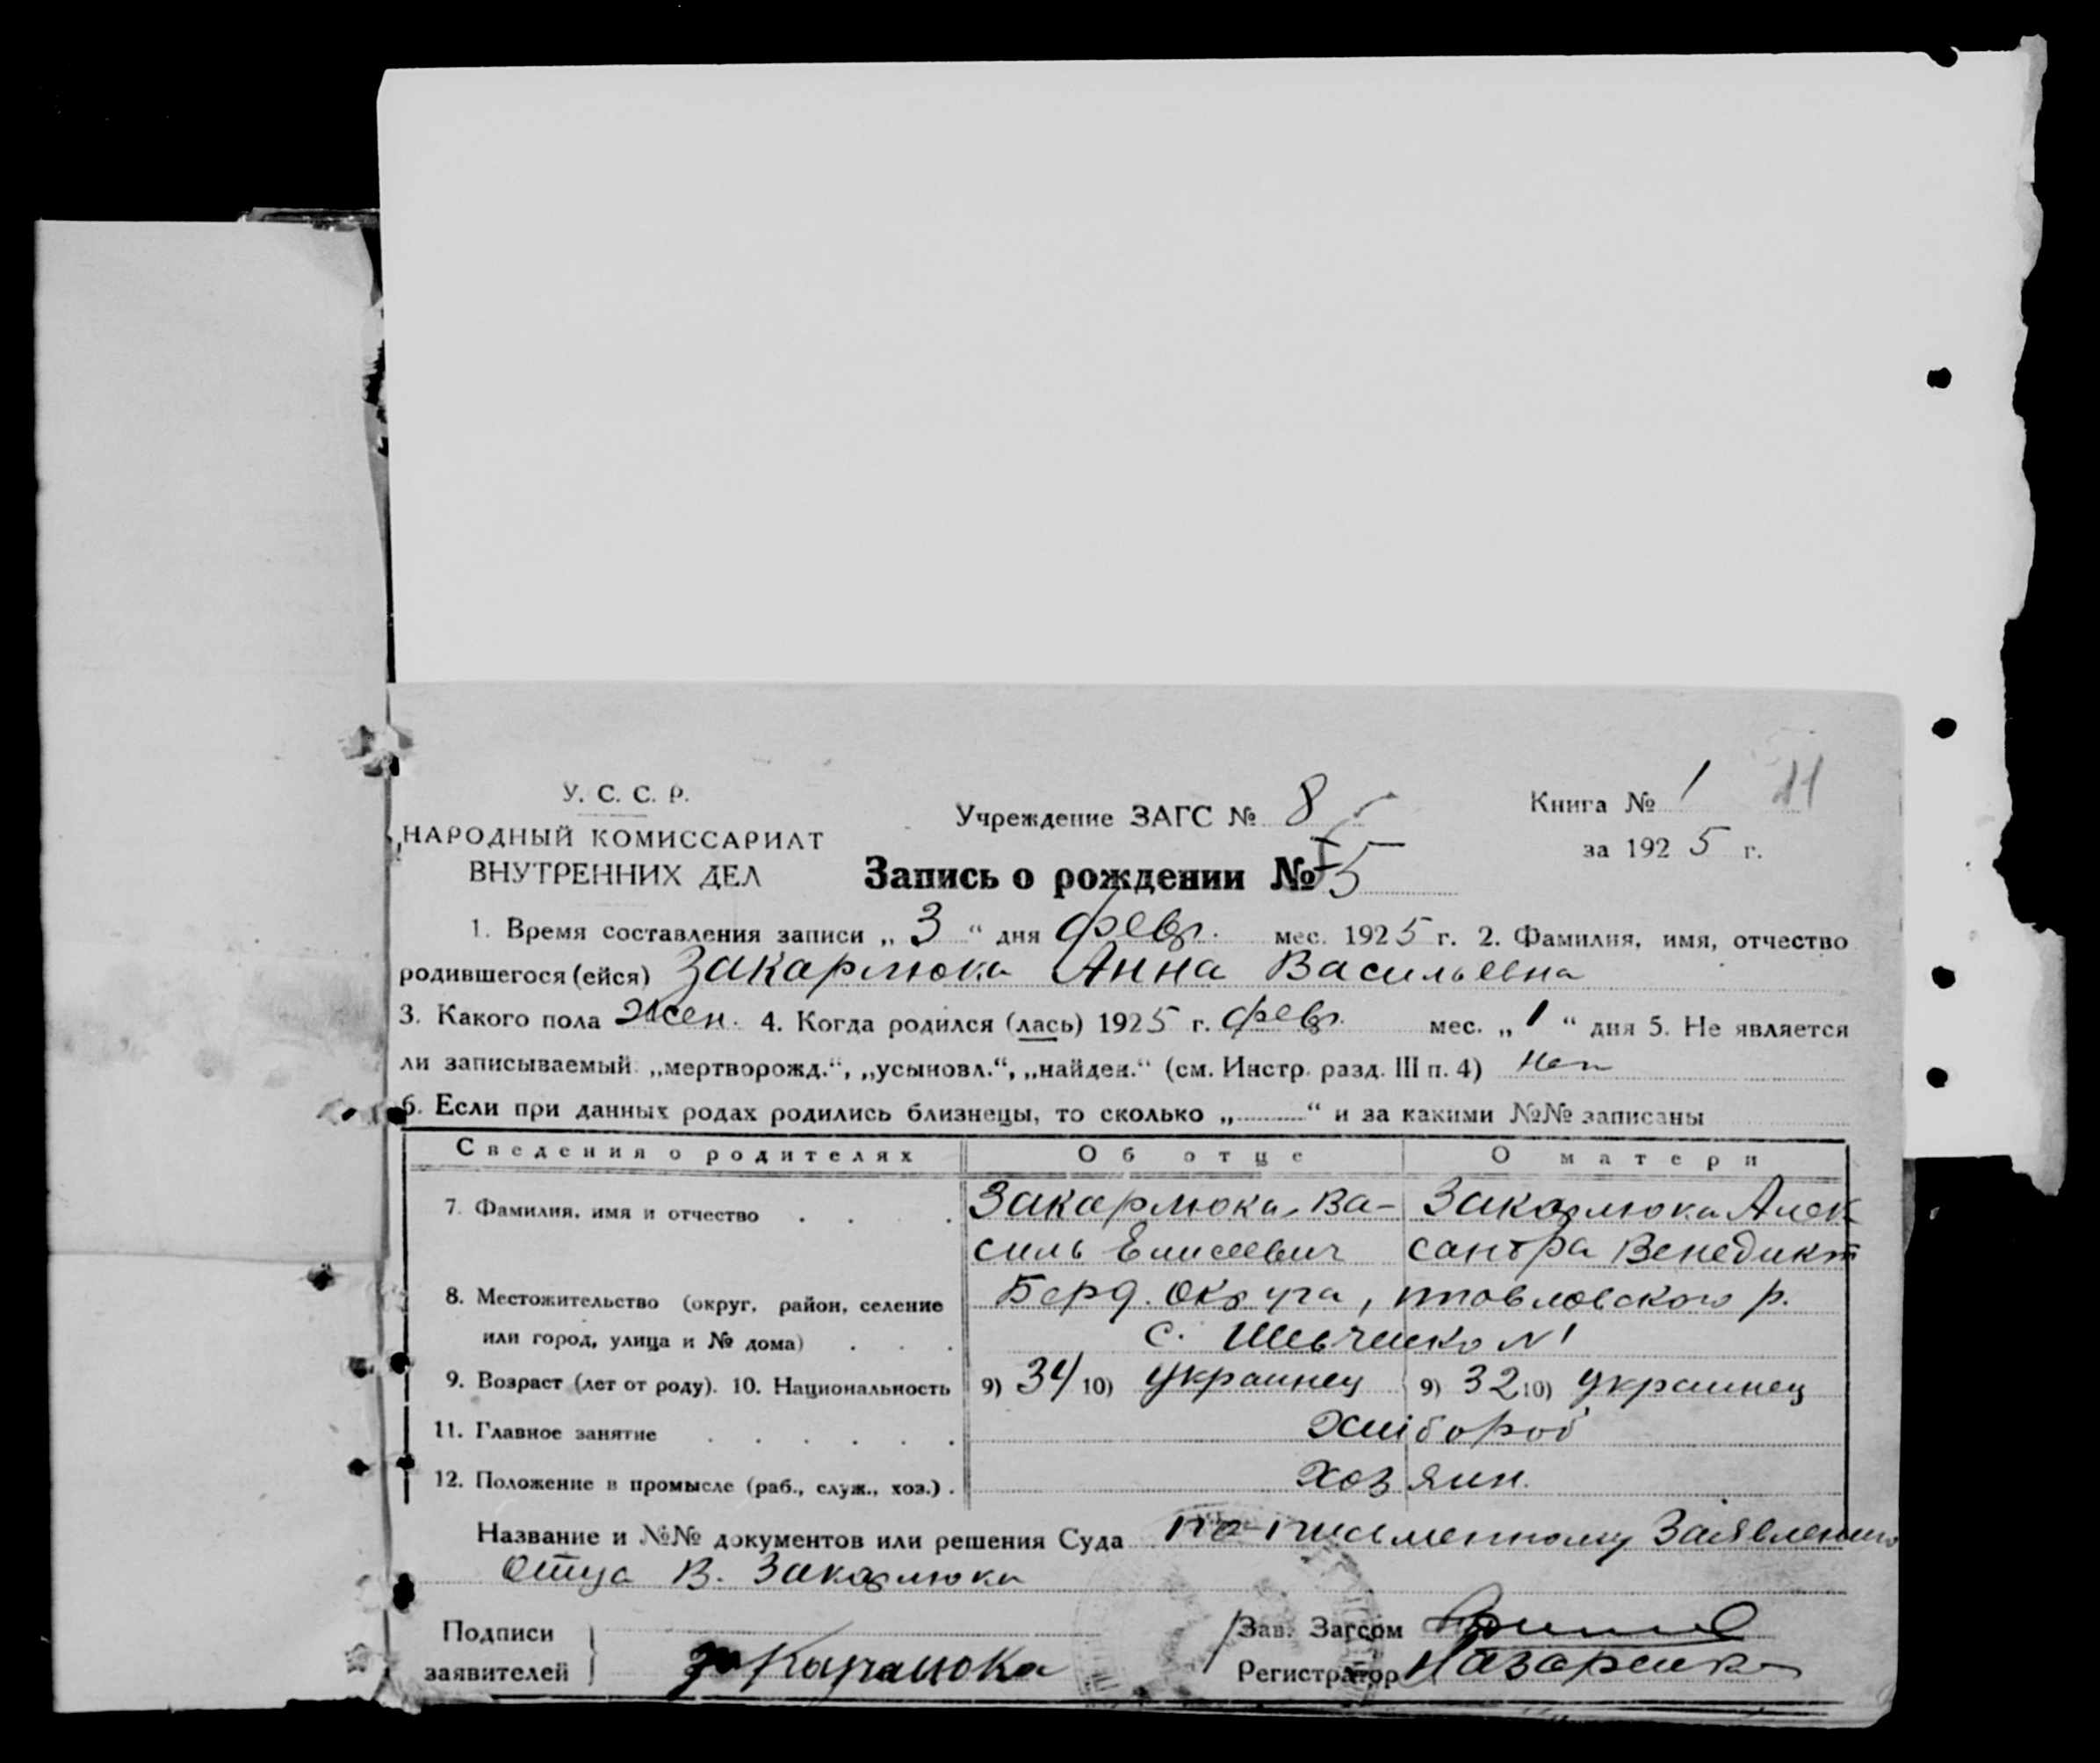 У. С. С. Р.
НАРОДНЫЙ КОМИССАРИАТ
ВНУТРЕННИХ ДЕЛ
Учреждение ЗАГС № 8
Книга № 1 11
за 1925 г.
Запись о рождении № 5
1. Время составления записи „3“ дня февр. мес. 1925 г. 2. Фамилия, имя, отчество
родившегося (ейся) Закарлюка Анна Васильевна
3. Какого пола Жен. 4. Когда родился (лась) 1925 г. февр. мес. „1“ дня 5. Не является
ли записываемый „мертворожд.“, „усыновл.“, „найден.“ (см. Инстр. разд. III п. 4) нет
6. Если при данных родах родились близнецы, то сколько „.........“ и за какими №№ записаны
Сведения о родителях Об отце О матери
7. Фамилия, имя и отчество . . . . Закарлюка Ва- Закарлюка Алек
силь Елисеевич сандра Венедикт
8. Местожительство (округ, район, селение Берд. Округа, р.
или город, улица и № дома) . . . с. Шевченко N 1
9. Возраст (лет от роду). 10. Национальность 9) 34 10) украинец 9) 32 10) украинец
11. Главное занятие . . . . . . Хлібороб
12. Положение в промысле (раб., служ., хоз.) . хозяин.
Название и №№ документов или решения Суда по письменному Заявлению
Отца В. Закарлюки
Подписи
заявителей
Закарлюка
Зав. Загсом
Регистратор Назаренко